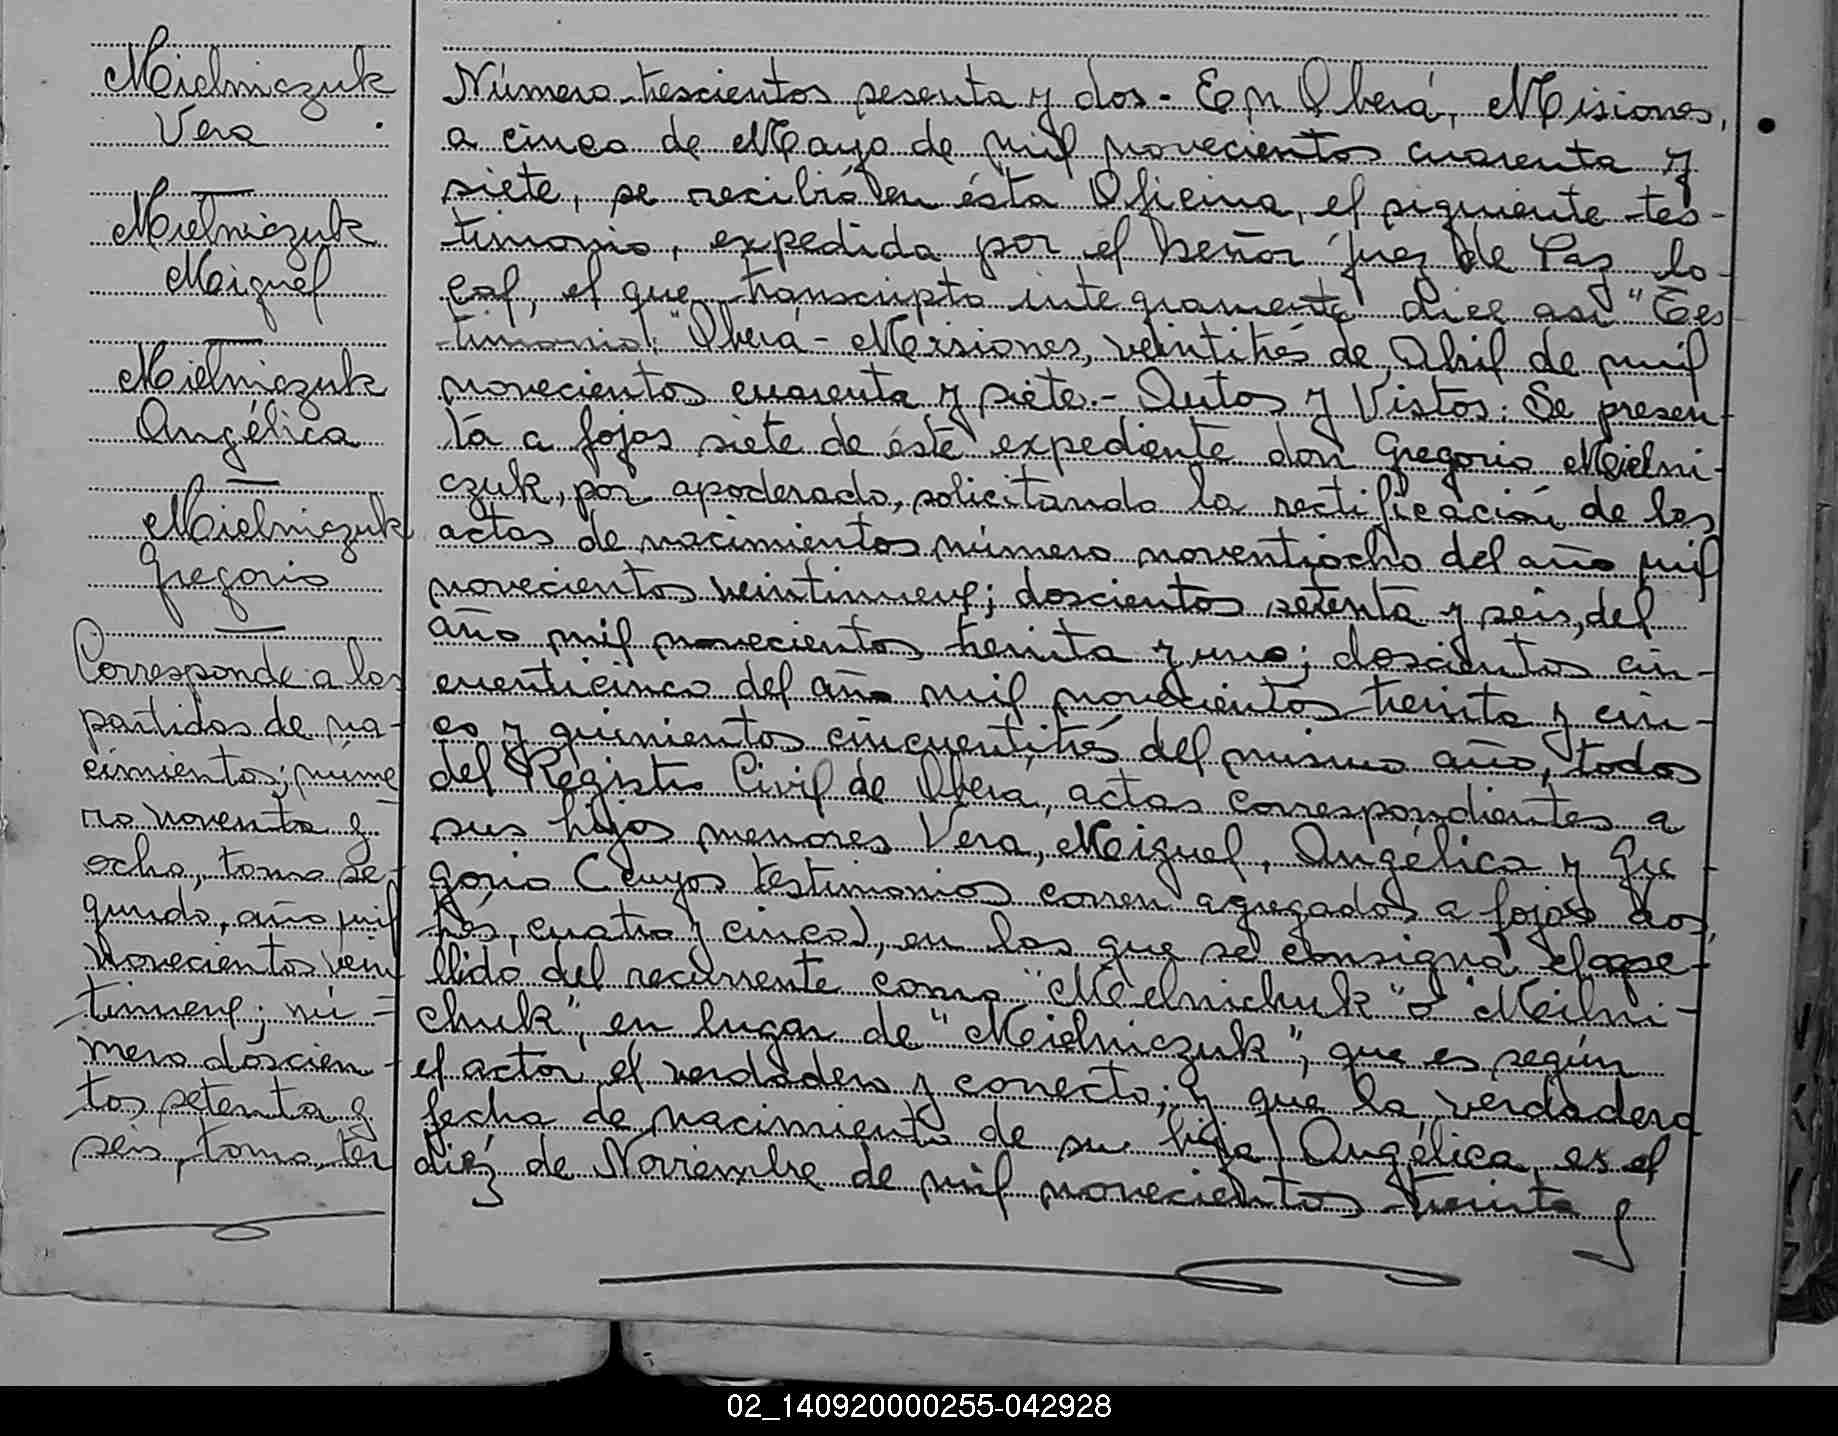 Mielniczuk
Vera
Mielniczuk
Miguel
Mielniczuk
Angélica
Mielniczuk
Gregorio
Corresponde a las
partidas de na-
cimientos; núme
ro noventa y
ocho, tomo se-
gundo, año mil
novecientos vein
tinueve; nú=
mero doscien-
tos setenta y
seis, tomo ter
Número trescientos sesenta y dos.- En Oberá, Misiones,
a cinco de Mayo de mil novecientos cuarenta y
siete, se recibió en ésta Oficina, el siguiente tes-
timonio, expedido por el Señor Juez de Paz lo-
cal, el que transcripto integramente dice asi "Tes
timonio: "Oberá - Misiones, veintitrés de Abril de mil
novecientos cuarenta y siete.- Autos y Vistos: Se presen-
ta a fojas siete de éste expediente don Gregorio Mielni-
czuk, por apoderado, solicitando la rectificación de las
actas de nacimientos número noventiocho del año mil
novecientos veintinueve; doscientos setenta y seis, del
año mil novecientos treinta y uno; doscientos cin-
cuenticinco del año mil novecientos treinta y cin-
co y quinientos cincuentitrés del mismo año, todos
del Registro Civil de Oberá, actas correspondientes a
sus hijos menores Vera, Miguel, Angélica y Gre-
gorio (cuyos testimonios corren agregados a fojas dos,
trés, cuatro y cinco), en las que se consigna el ape-
llido del recurrente como "Melnichuk" o "Meilni-
chuk", en lugar de "Mielniczuk", que es según
el actor el verdadero y correcto; y que la verdadera
fecha de nacimiento de su hija Angélica, es el
diéz de Noviembre de mil novecientos treinta y
02_140920000255-042928